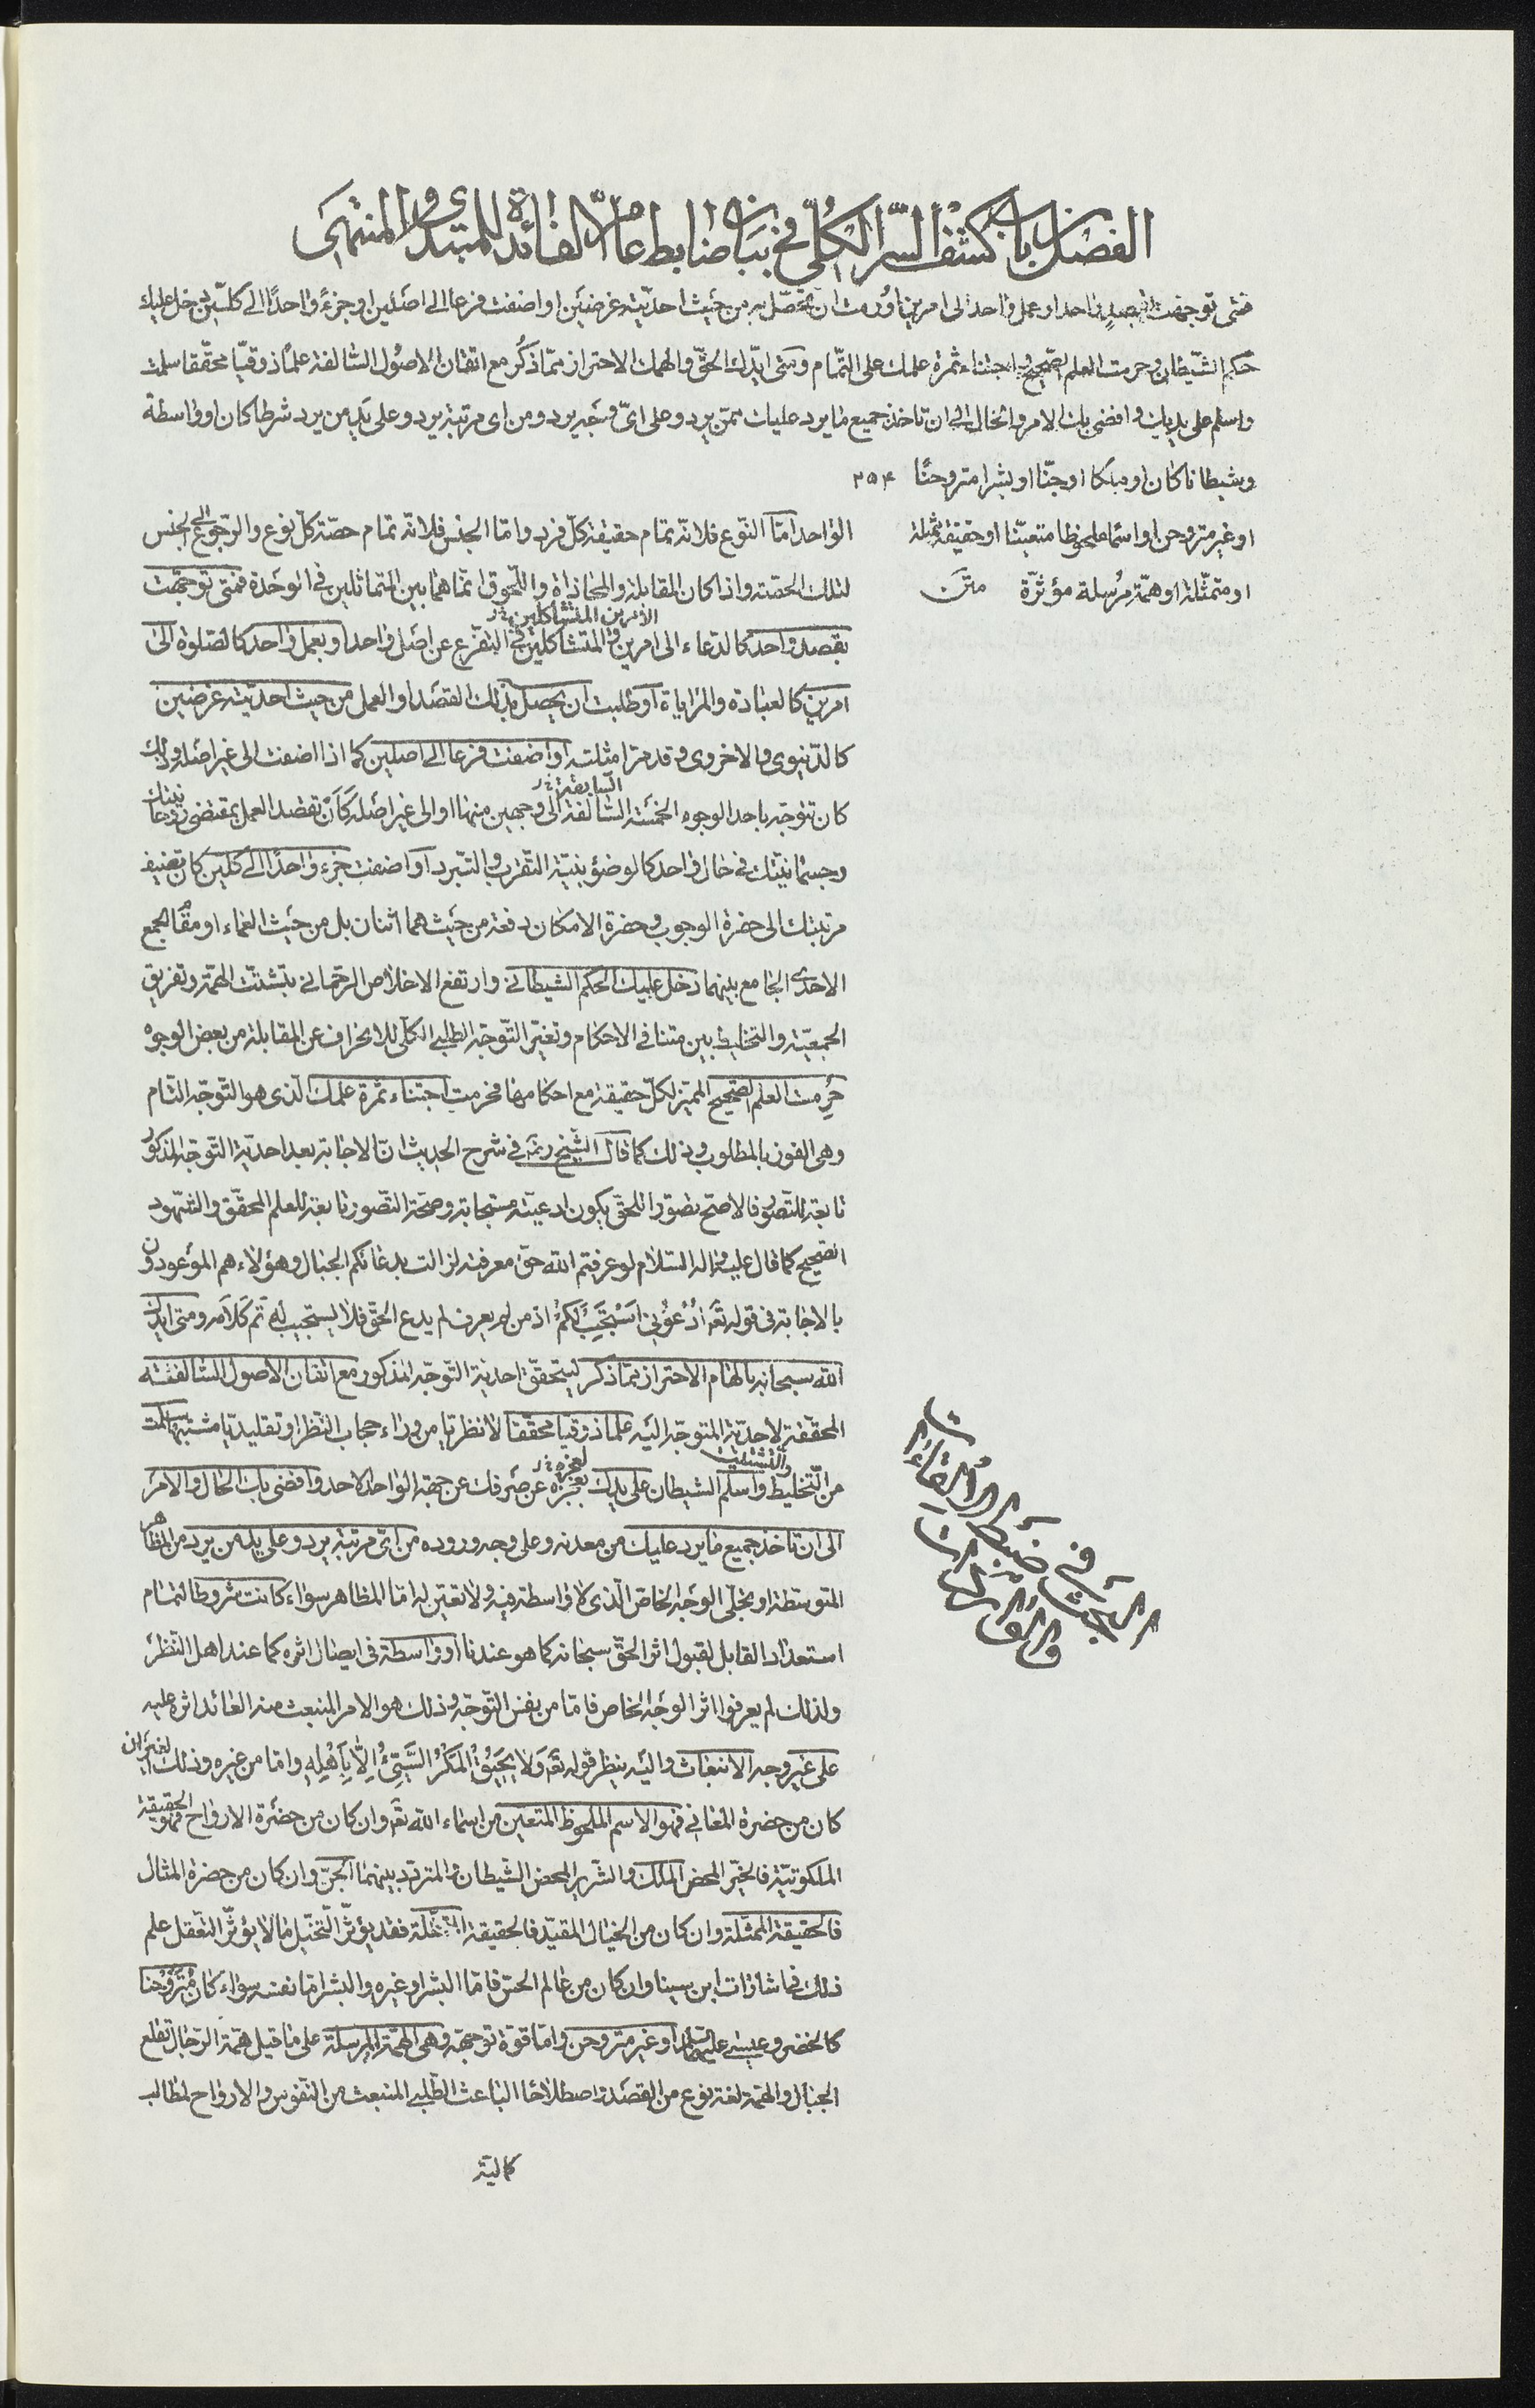 الفصل باب كشف السر الكلى فى بيان ضابط عام الفائدة للمبتدى والمنتهى
فمتى توجهت بقصد واحد او عمل واحد الى امرين او رمت ان تحصل به من حيث احديته غرضين او اضفت فرعا الى اصلين او جزءً واحدًا الى كلين دخل عليك
حكم الشيطان وحرمت العلم الصحيح اجتناء ثمرة علمك على التمام ومتى ايدك الحق والهمك الاحتراز مما ذكر مع اتقان الاصول السالفة علمًا ذوقيّا محققا سلمت
واسلم على يديك وافضى بك الامر والحال الى ان تاخذ جميع ما يرد عليك ممن يرد وعلى اىّ وجه يرد ومن اى مرتبة يرد وعلى يد من يرد شرطا كان او واسطة
وشيطانا كان او ملكا او جنّا او بشرا متروحنًا ٢٥٤
او غير متروحن او اسما ملحوظا متعينا او حقيقة ممثلة
او متمثلة او همة مرسلة مؤثرة متن
الواحد امّا النوع فلانه تمام حقيقة كل فرد واما الجنس فلانه تمام حصة كل نوع والرجوع الى الجنس
لتلك الحصة واذا كان المقابلة والمحاذاة واللحوق انما هما بين المتماثلين فى الوحدة فمتى توجهت
الامرين المتشاكلين
بقصد واحد كالدعاء الى امرين والمتشاكلين فى التفرع عن اصل واحد او بعمل واحد كالصلوة الى
امرين كالعبادة والمراياة او طلبت ان يحصل بذلك القصد او العمل من حيث احديته غرضين
كالدنيوى والاخروى وقد مر امثلته او اضفت فرعا الى اصلين كما اذا اضفت الى غير اصله وذلك
السابقة
كان تتوجه باحد الوجوه الخمسة السالفة الى وجهين منها او الى غير اصله كَأَنْ تقصد العمل بمقتضى روحانيتك
وجسمانيتك فى حال واحد كالوضؤ بنية التقرب والتبرد او اضفت جزء واحدًا الى كلين كان تضيف
مرتبتك الى حضرة الوجوب وحضرة الامكان دفعة من حيث هما اثنان بل من حيث العماء او مقام الجمع
الاحدى الجامع بينهما دخل عليك الحكم الشيطانى وارتفع الاخلاص الرحمانى بتشتت الهمة وتفريق
الجمعية والتخليط بين متنافى الاحكام وتغير التوجه الطلبى الكلى للانحراف عن المقابلة من بعض الوجوه
حُرِمت العلم الصحيح المميز لكل حقيقة مع احكامها فحرمت اجتناء ثمرة علمك الذى هو التوجه التام
وهى الفوز بالمطلوب وذلك كما قال الشيخ رضه فى شرح الحديث ان الاجابة بعد احدية التوجه المذكور
تابعة للتصور فالاصح تصورا للحق يكون ادعيته مستجابة وصحة التصور تابعة للعلم المحقق والشهود
الصحيح كما قال عليه واله السلام لو عرفتم الله حق معرفته لزالت بدعائكم الجبال وهؤلاء هم الموعودون
بالاجابة فى قوله تعَ ادْعُونِى اَسْتَجِبْ لَكُمْ اذ من لم يعرف لم يدع الحق فلا يستجيب له تم كلامه ومتى ايدك
الله سبحانه بالهام الاحتراز مما ذكر ليتحقق احدية التوجه المذكور مع اتقان الاصول السالفة
المحققة لاحدية المتوجه اليه علما ذوقيا محققا لا نظريّا من وراء حجاب النظر او تقليديّا مشتبها سلمت
والتشتت
من التخليط واسلم الشيطان على يدك لعجزه عن صرفك عن جهة الواحد الاحد وافضى بك الحال والامر
الى ان تاخذ جميع ما يرد عليك من معدنه وعلى وجه وروده من اىّ مرتبة يرد وعلى يد من يرد من المظاهر
المتوسطة او تجلى الوجه الخاص الذى لا واسطة فيه ولا تعين له اما المظاهر سواء كانت شروطا لتمام
استعداد القابل لقبول اثر الحق سبحانه كما هو عندنا او واسطة فى ايصال اثره كما عند اهل النظر
ولذلك لم يعرفوا اثر الوجه الخاص فاما من نفس التوجه وذلك هو الامر المنبعث منه العائد اثره عليه
على غير وجه الانبعاث واليه ينظر قوله تعَ وَلا يَحِيقُ المَكْرُ السَّيِّئُ اِلاَّ بِاَهْلِهِ واما من غيره وذلك الغير ان
كان من حضرة المعانى فهو الاسم الملحوظ المتعين من اسماء الله تعَ وان كان من حضرة الارواح فهو الحقيقة
الملكوتية فالخيّر المحض الملك والشرير المحض الشيطان والمتردد بينهما الجن وان كان من حضرة المثال
فالحقيقة الممثلة وان كان من الخيال المقيد فالحقيقة المتمثلة فقد يؤثر التخيل ما لا يؤثر التعقل علم
ذلك فى اشارات ابن سينا وان كان من عالم الحس فاما البشر او غيره والبشر اما نفسه سواء كان متروحنا
كالخضر وعيسى عليهما السلام او غير متروحن واما قوة توجهه وهى الهمة المرسلة على ما قيل همة الرجال تقلع
الجبال والهمة لغة نوع من القصد واصطلاحًا الباعث الطلبى المنبعث من النفوس والارواح لمطالب
كمالية
البحث فى ضبط الالقاءات
والواردات